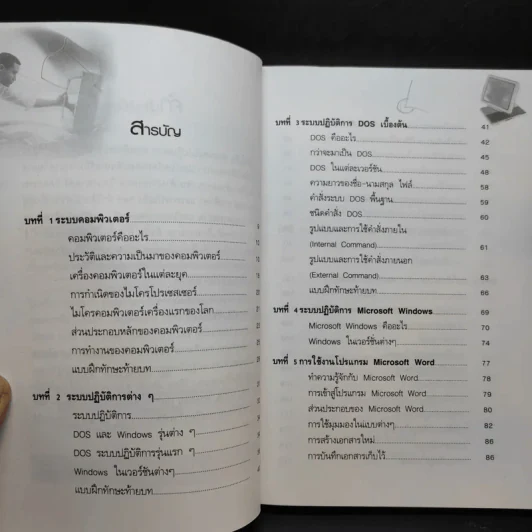 สารบัญ
บทที่ 1 ระบบคอมพิวเตอร์
คอมพิวเตอร์คืออะไร
ประวัติและความเป็นมาของคอมพิวเตอร์
เครื่องคอมพิวเตอร์ในแต่ละยุค
การกำเนิดของไมโครโปรเซสเซอร์
ไมโครคอมพิวเตอร์เครื่องแรกของโลก
ส่วนประกอบหลักของคอมพิวเตอร์
การทำงานของคอมพิวเตอร์
แบบฝึกทักษะท้ายบท
บทที่ 2 ระบบปฏิบัติการต่าง ๆ
ระบบปฏิบัติการ
DOS และ Windows รุ่นต่าง ๆ
DOS ระบบปฏิบัติการรุ่นแรก ๆ
Windows ในเวอร์ชันต่างๆ
แบบฝึกทักษะท้ายบท
บทที่ 3 ระบบปฏิบัติการ DOS เบื้องต้น 41
DOS คืออะไร 42
กว่าจะมาเป็น DOS 45
DOS ในแต่ละเวอร์ชัน 48
ความยาวของชื่อ-นามสกุล ไฟล์ 58
คำสั่งระบบ DOS พื้นฐาน 59
ชนิดคำสั่ง DOS 60
รูปแบบและการใช้คำสั่งภายใน
(Internal Command) 61
รูปแบบและการใช้คำสั่งภายนอก
(External Command) 63
แบบฝึกทักษะท้ายบท 66
บทที่ 4 ระบบปฏิบัติการ Microsoft Windows 69
Microsoft Windows คืออะไร 70
Windows ในเวอร์ชันต่างๆ 74
บทที่ 5 การใช้งานโปรแกรม Microsoft Word 77
ทำความรู้จักกับ Microsoft Word 78
การเข้าสู่โปรแกรม Microsoft Word 79
ส่วนประกอบของ Microsoft Word 80
การใช้มุมมองในแบบต่างๆ 82
การสร้างเอกสารใหม่ 86
การบันทึกเอกสารเก็บไว้ 86